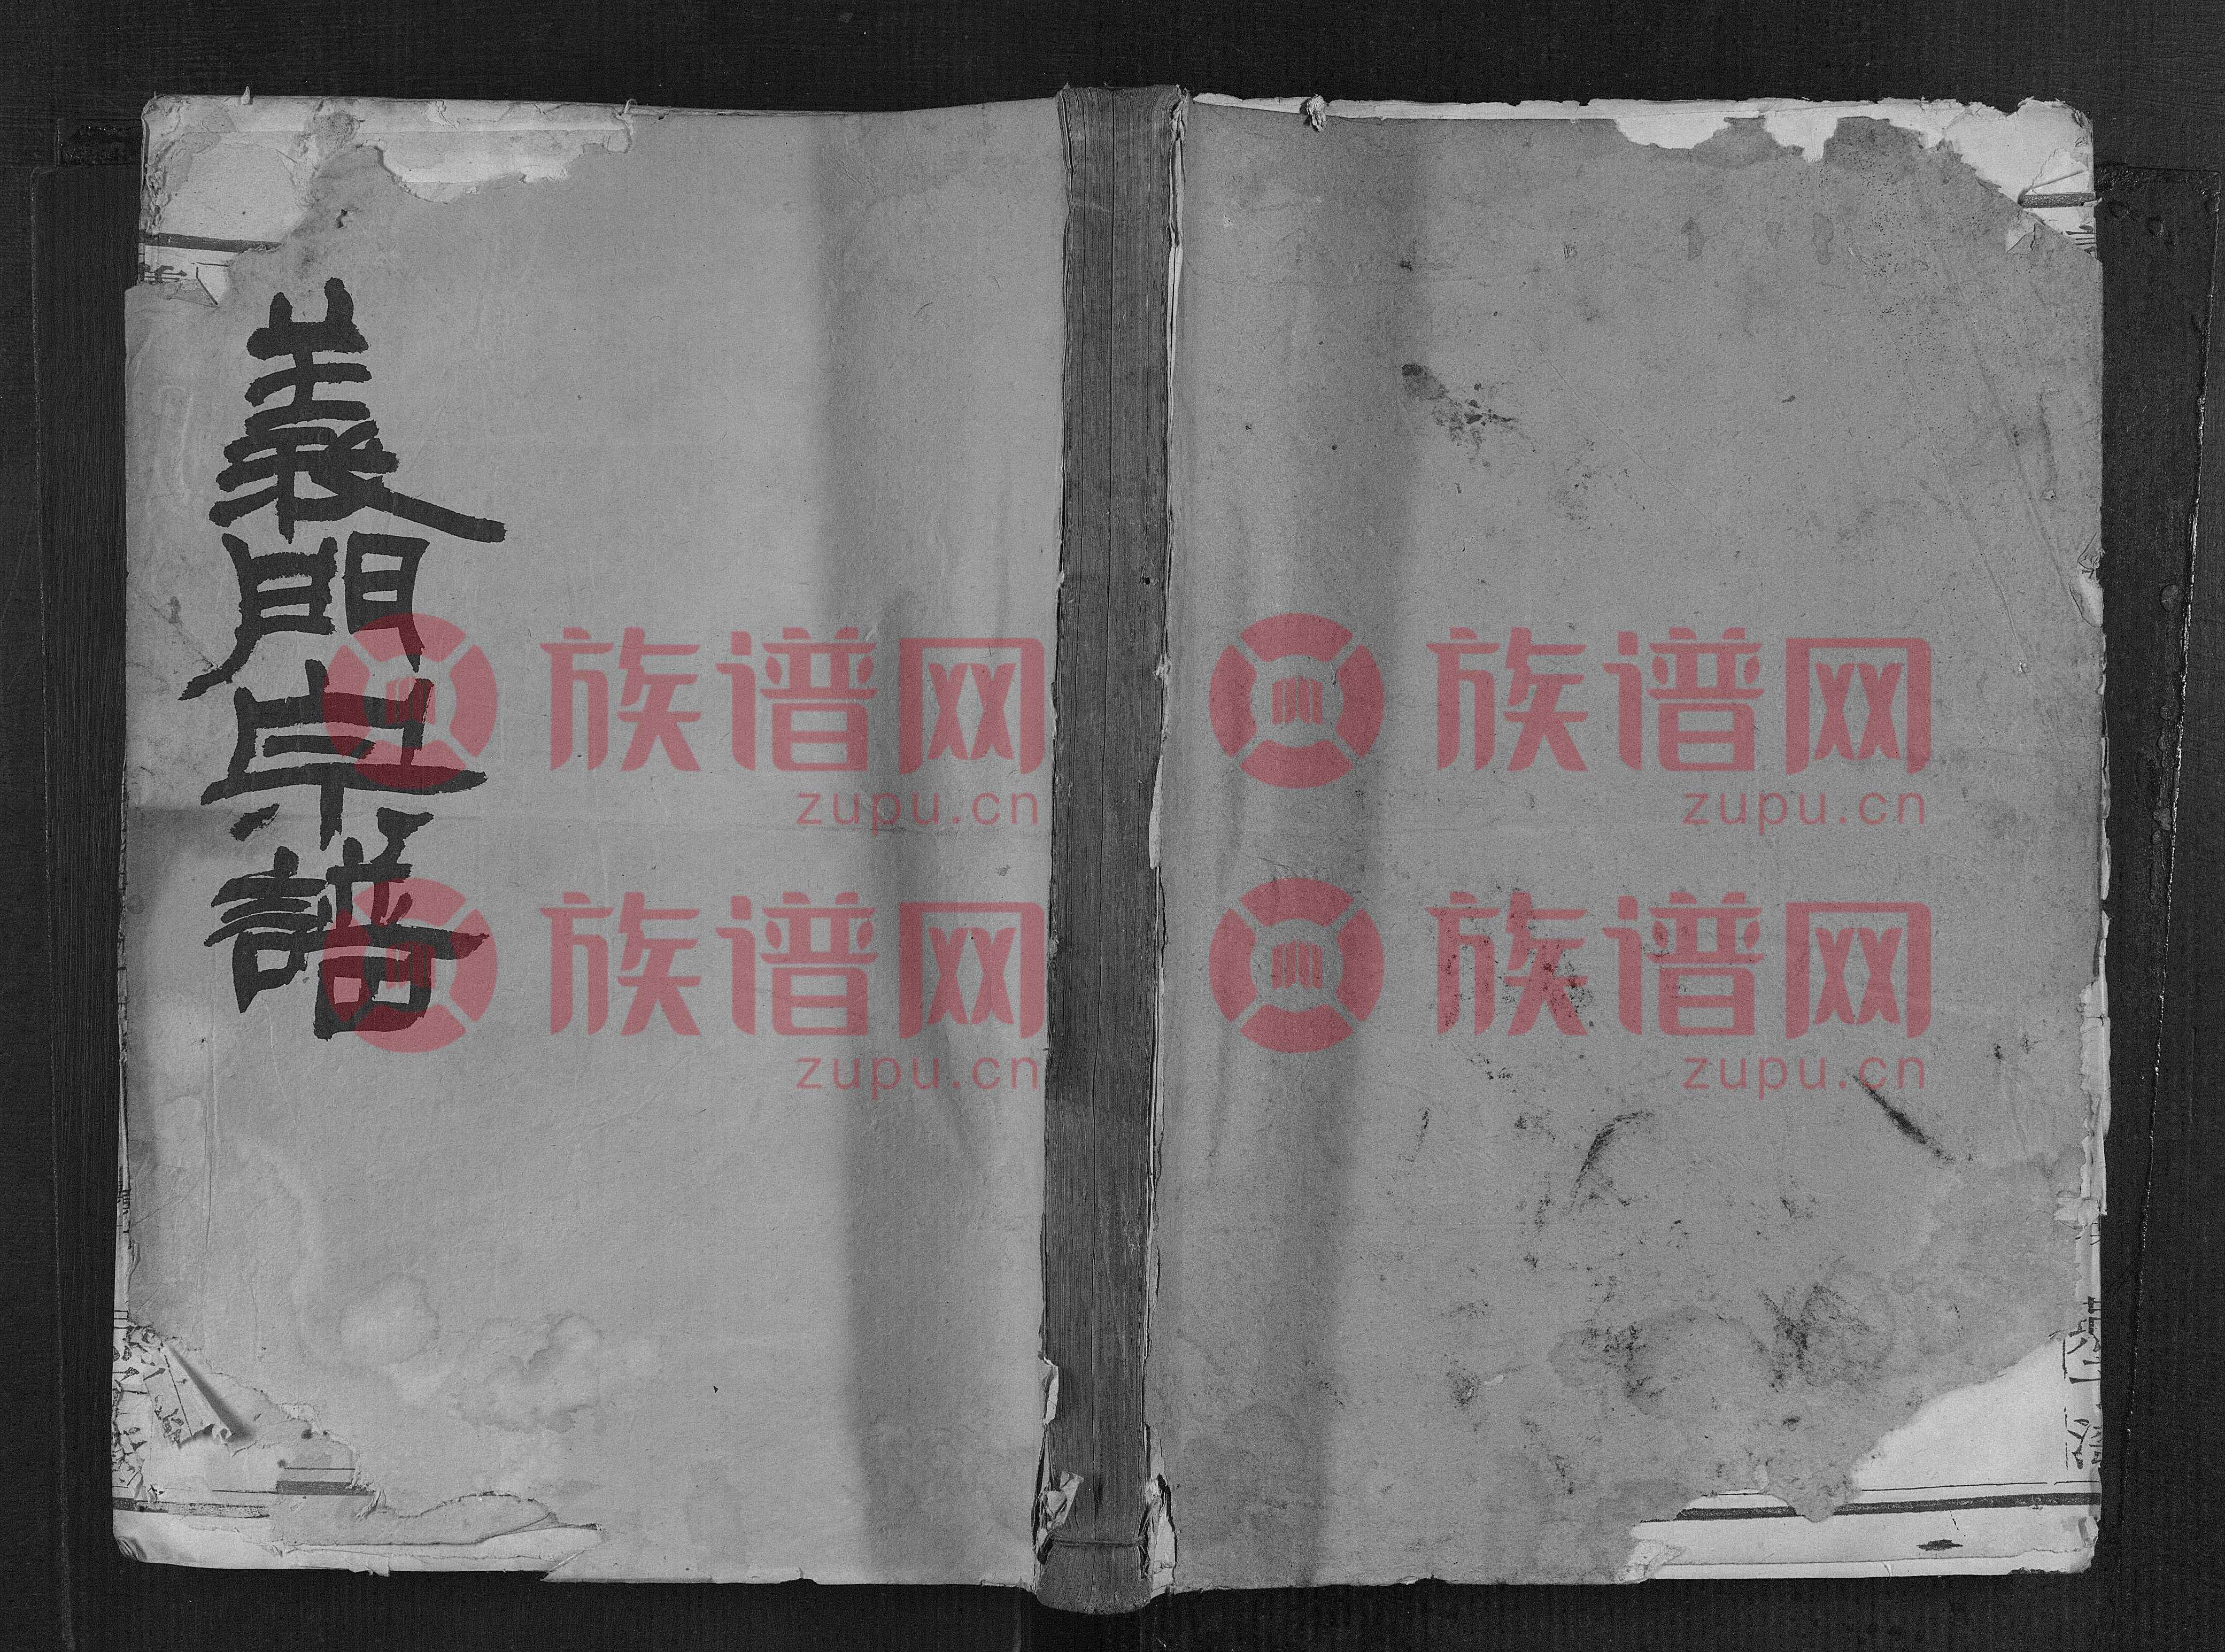 義門卓譜
族谱网
zupu.cn
族谱网
zupu.cn
族谱网
zupu.cn
族谱网
zupu.cn